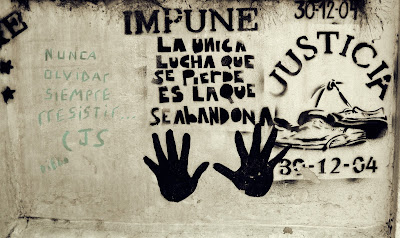 IMPUNE
30-12-04
NUNCA
OLVIDAR
SIEMPRE
RESISTIR
CJS
LA UNICA
LUCHA QUE
SE PIERDE
ES LA QUE
SE ABANDONA
JUSTICIA
30-12-04